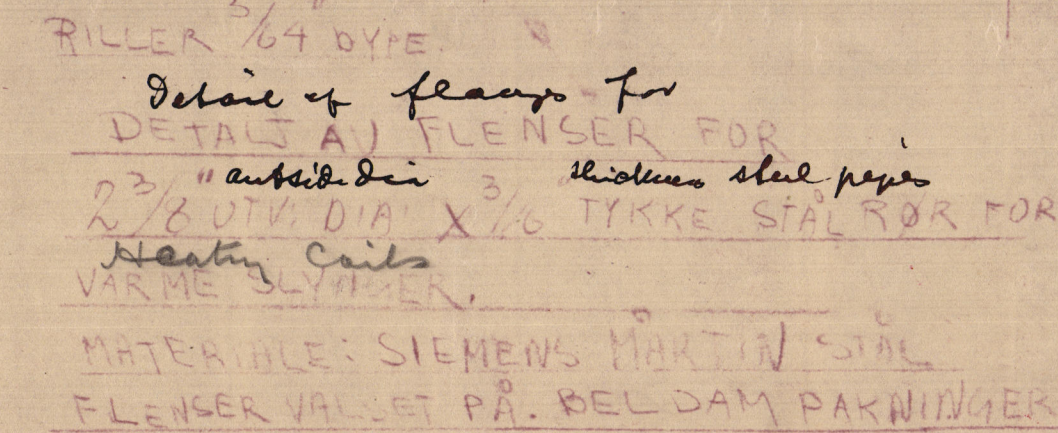 RILLER 3/64" DYPE.
Detail of flanges for
DETALJ AV FLENSER FOR
outside dia thickness steel pipes
2 3/8" UTV. DIA. X 3/16 TYKKE STÅLRØR FOR
Heating Coils
VARME SLYNGER.
MATERIALE: SIEMENS MARTIN STÅL
FLENSER VALSET PÅ. BELDAM PAKNINGER